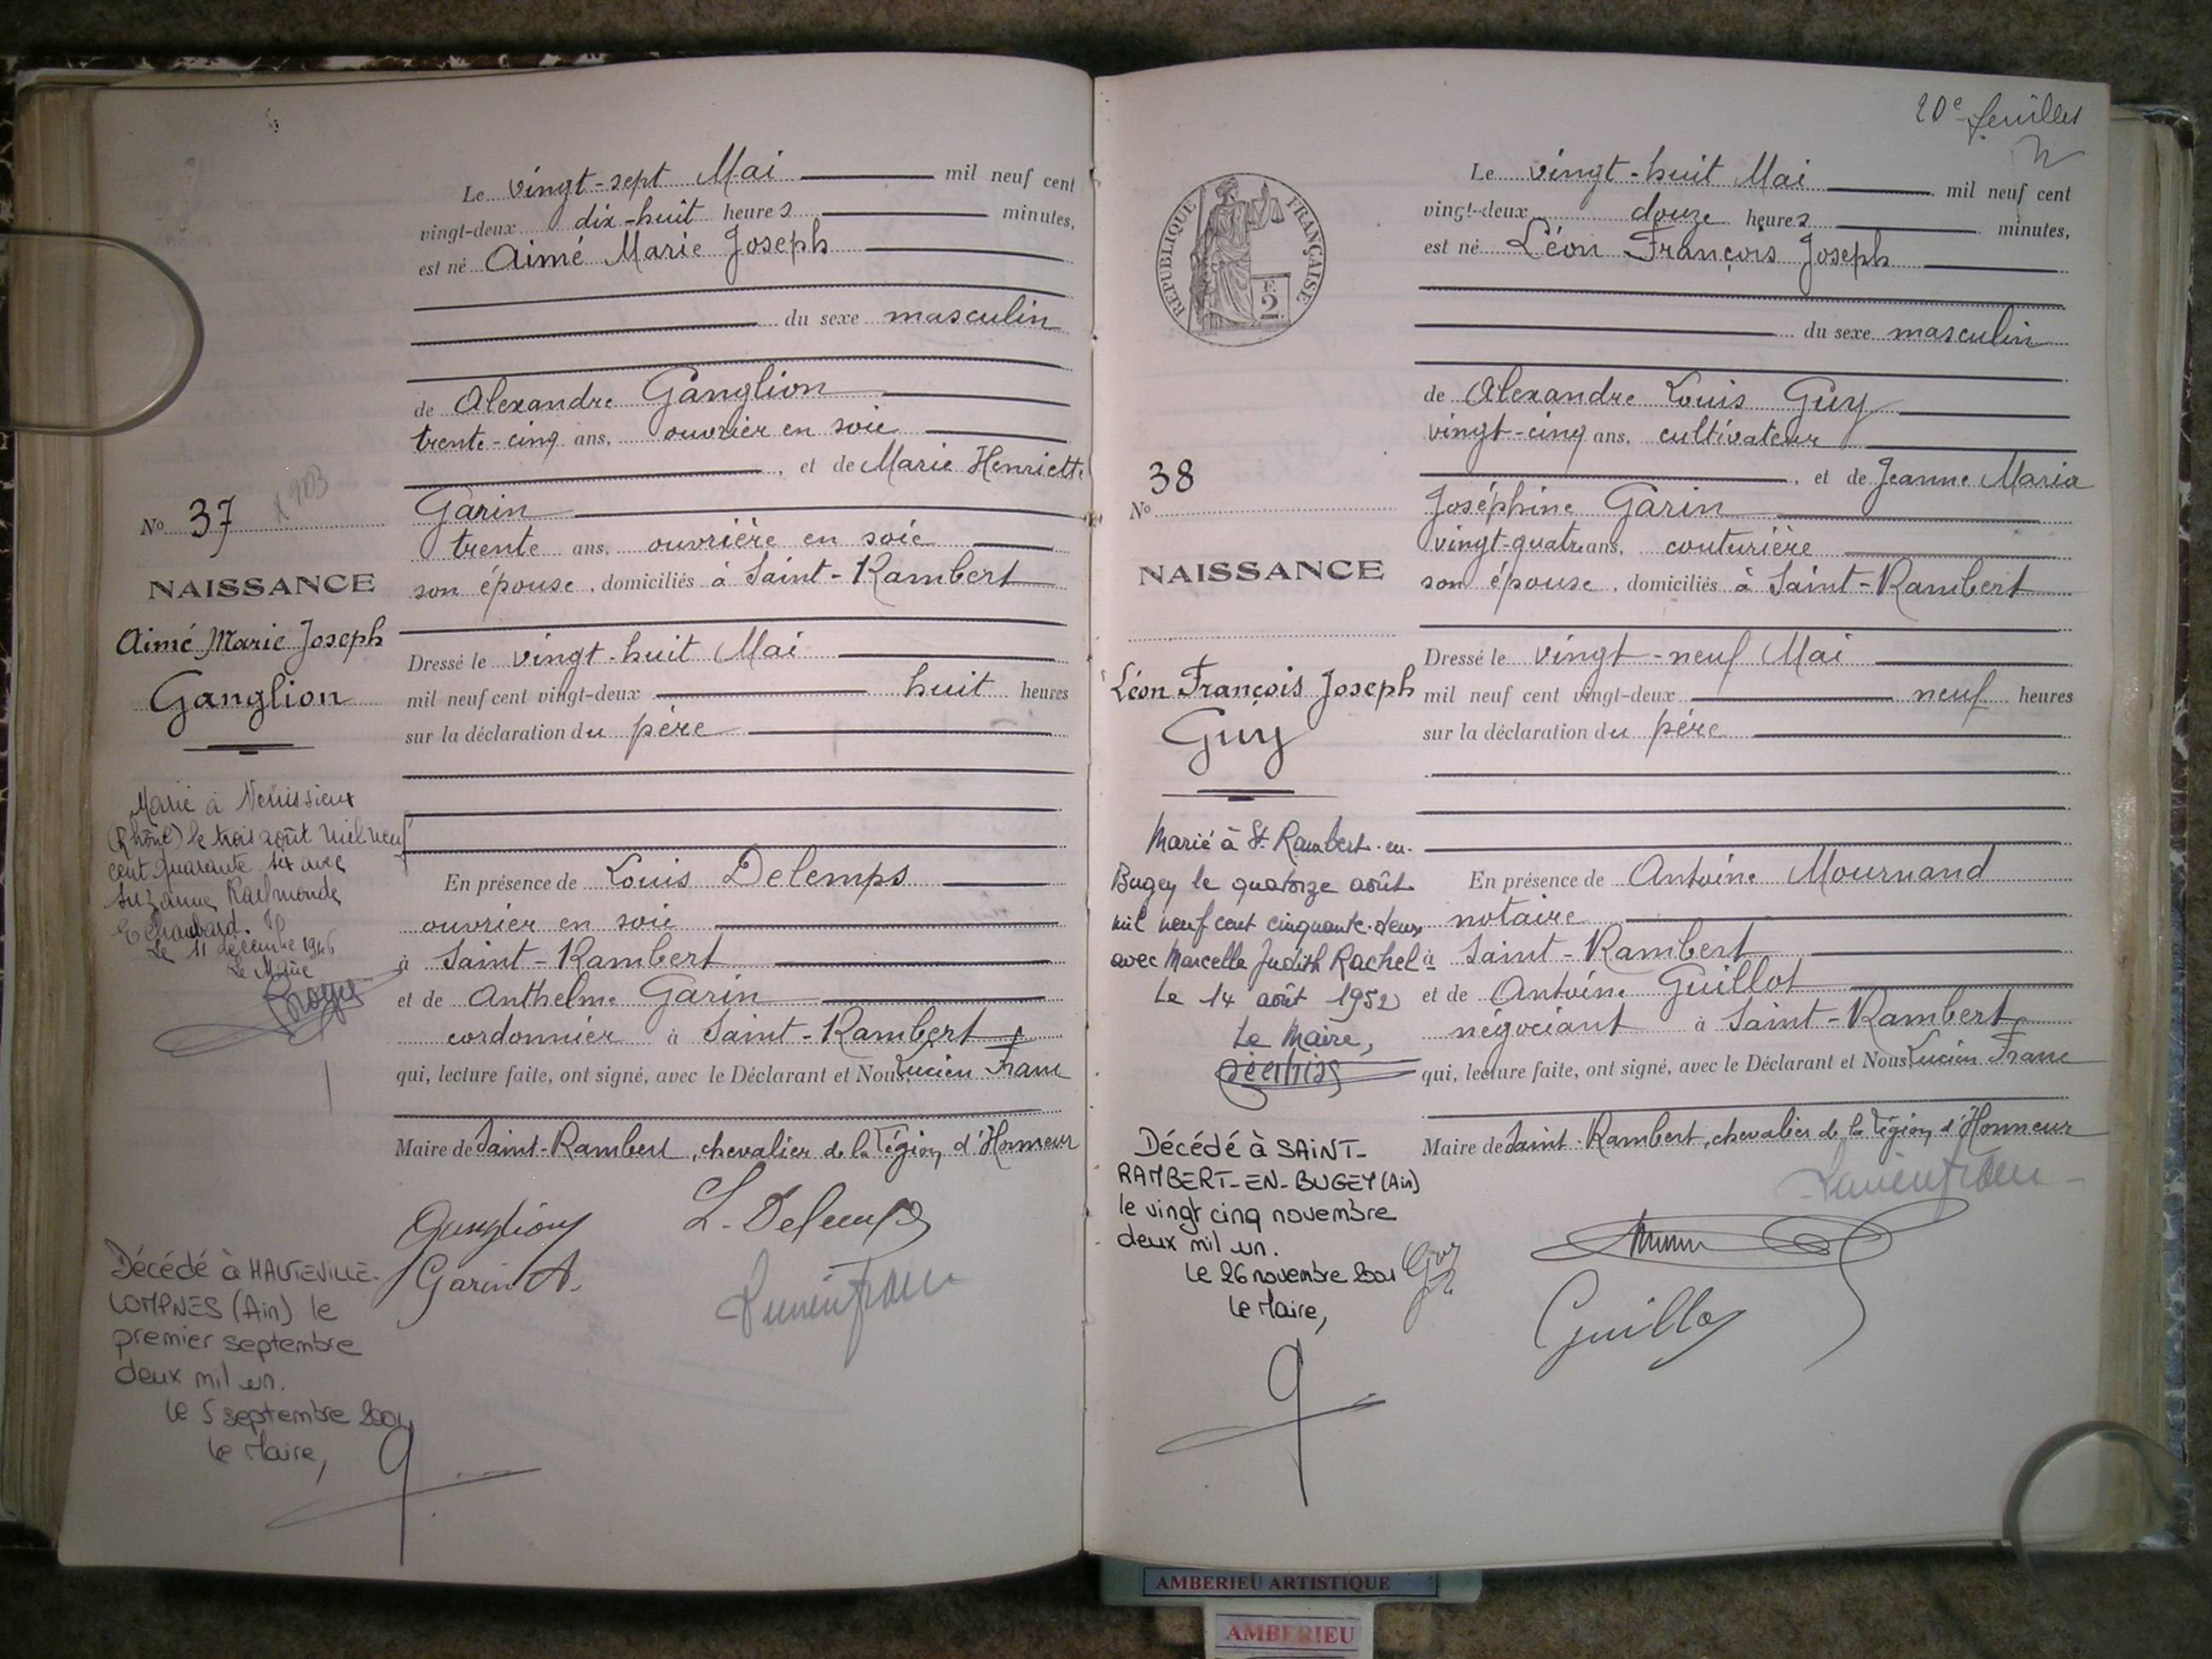 Le vingt-sept Mai mil neuf cent
vingt-deux dix-huit heures minutes,
est né Aimé Marie Joseph
du sexe masculin
de Alexandre Ganglion
trente-cinq ans, ouvrier en soie
, et de Marie Henriette
Garin
trente ans, ouvrière en soie
son épouse, domiciliés à Saint-Rambert
Dressé le vingt-huit Mai
mil neuf cent vingt-deux huit heures
sur la déclaration du père
En présence de Louis Delemps
ouvrier en soie
à Saint-Rambert
et de Anthelme Garin
cordonnier à Saint-Rambert
qui, lecture faite, ont signé, avec le Déclarant et Nous, Lucien Franc
Maire de Saint-Rambert, chevalier de la Légion d'Honneur
Ganglion L. Delemps
Garin A.
Lucien Franc
No 37
NAISSANCE
Aimé Marie Joseph
Ganglion
Marié à Vénissieux
(Rhône) le trois août mil neuf
cent quarante six avec
Suzanne Raymonde
Echaubard.
Le 11 décembre 1946
Le Maire
Décédé à HAUTEVILLE-
LOMPNES (Ain) le
premier septembre
deux mil un.
le 5 septembre 2001
le Maire,
20e feuillet
Le vingt-huit Mai mil neuf cent
vingt-deux douze heures minutes,
est né Léon François Joseph
du sexe masculin
de Alexandre Louis Guy
vingt-cinq ans, cultivateur
, et de Jeanne Maria
Joséphine Garin
vingt-quatre ans, couturière
son épouse, domiciliés à Saint-Rambert
Dressé le vingt-neuf Mai
mil neuf cent vingt-deux neuf heures
sur la déclaration du père
En présence de Antoine Mournand
notaire
à Saint-Rambert
et de Antoine Guillot
négociant à Saint-Rambert
qui, lecture faite, ont signé, avec le Déclarant et Nous, Lucien Franc
Maire de Saint-Rambert, chevalier de la Légion d'Honneur
Lucien Franc
Guy
Guillot
REPUBLIQUE FRANÇAISE
F.
2
No 38
NAISSANCE
Léon François Joseph
Guy
Marié à St. Rambert-en-
Bugey le quatorze août
mil neuf cent cinquante-deux
avec Marcelle Judith Rachel
Le 14 août 1952
Le Maire,
Décédé à SAINT-
RAMBERT-EN-BUGEY (Ain)
le vingt cinq novembre
deux mil un.
le 26 novembre 2001
le Maire,
AMBERIEU ARTISTIQUE
AMBERIEU